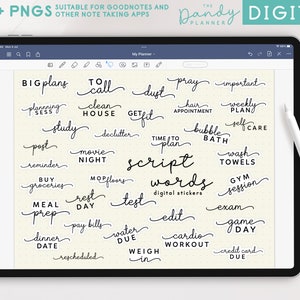 + PNGS SUITABLE FOR GOODNOTES AND
OTHER NOTE TAKING APPS
THE Dandy PLANNER
DIGIT
My Planner
BIG plans
TO call
dust
pray
important
planning SESS
clean HOUSE
GET fit
HAIR APPOINTMENT
weekly PLAN
study
declutter
TIME TO plan
bubble BATH
self CARE
post
movie NIGHT
script
words
digital stickers
wash TOWELS
reminder
BUY groceries
MOP floors
GYM session
MEAL prep
rest DAY
test
edit
exam
pay bills
game DAY
dinner DATE
water DUE
cardio WORKOUT
rescheduled
WEIGH in
credit card DUE